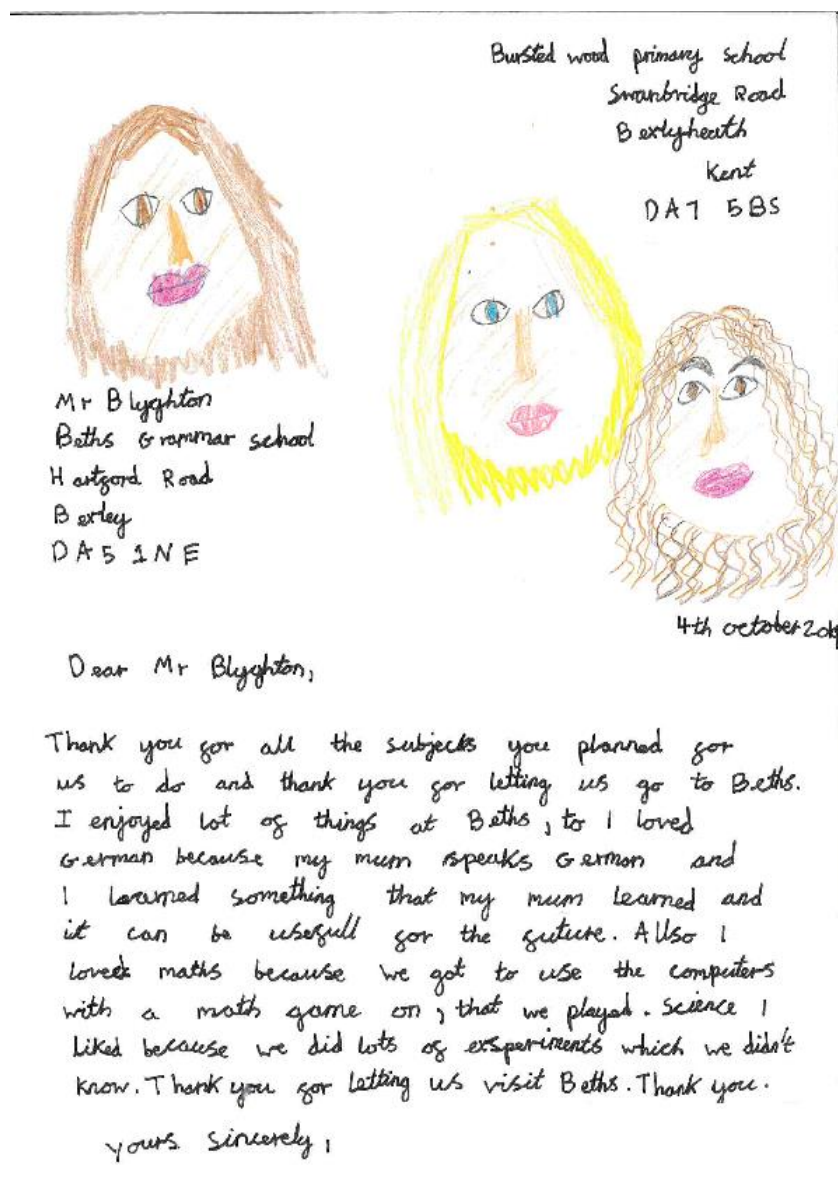 Bursted wood primary school
Swanbridge Road
Bexlyheath
Kent
DA7 5BS
Mr Blyghton
Beths Grammar school
Hartford Road
Bexley
DA5 1NE
4th october
Dear Mr Blyghton,
Thank you for all the subjects you planned for
us to do and thank you for letting us go to Beths.
I enjoyed lot of things at Beths, to I loved
German because my mum speaks German and
I learned something that my mum learned and
it can be usefull for the future. Allso I
loved maths because we got to use the computers
with a math game on, that we played. Science I
liked because we did lots of exsperiments which we didn't
know. Thank you for letting us visit Beths. Thank you.
yours sincerely,